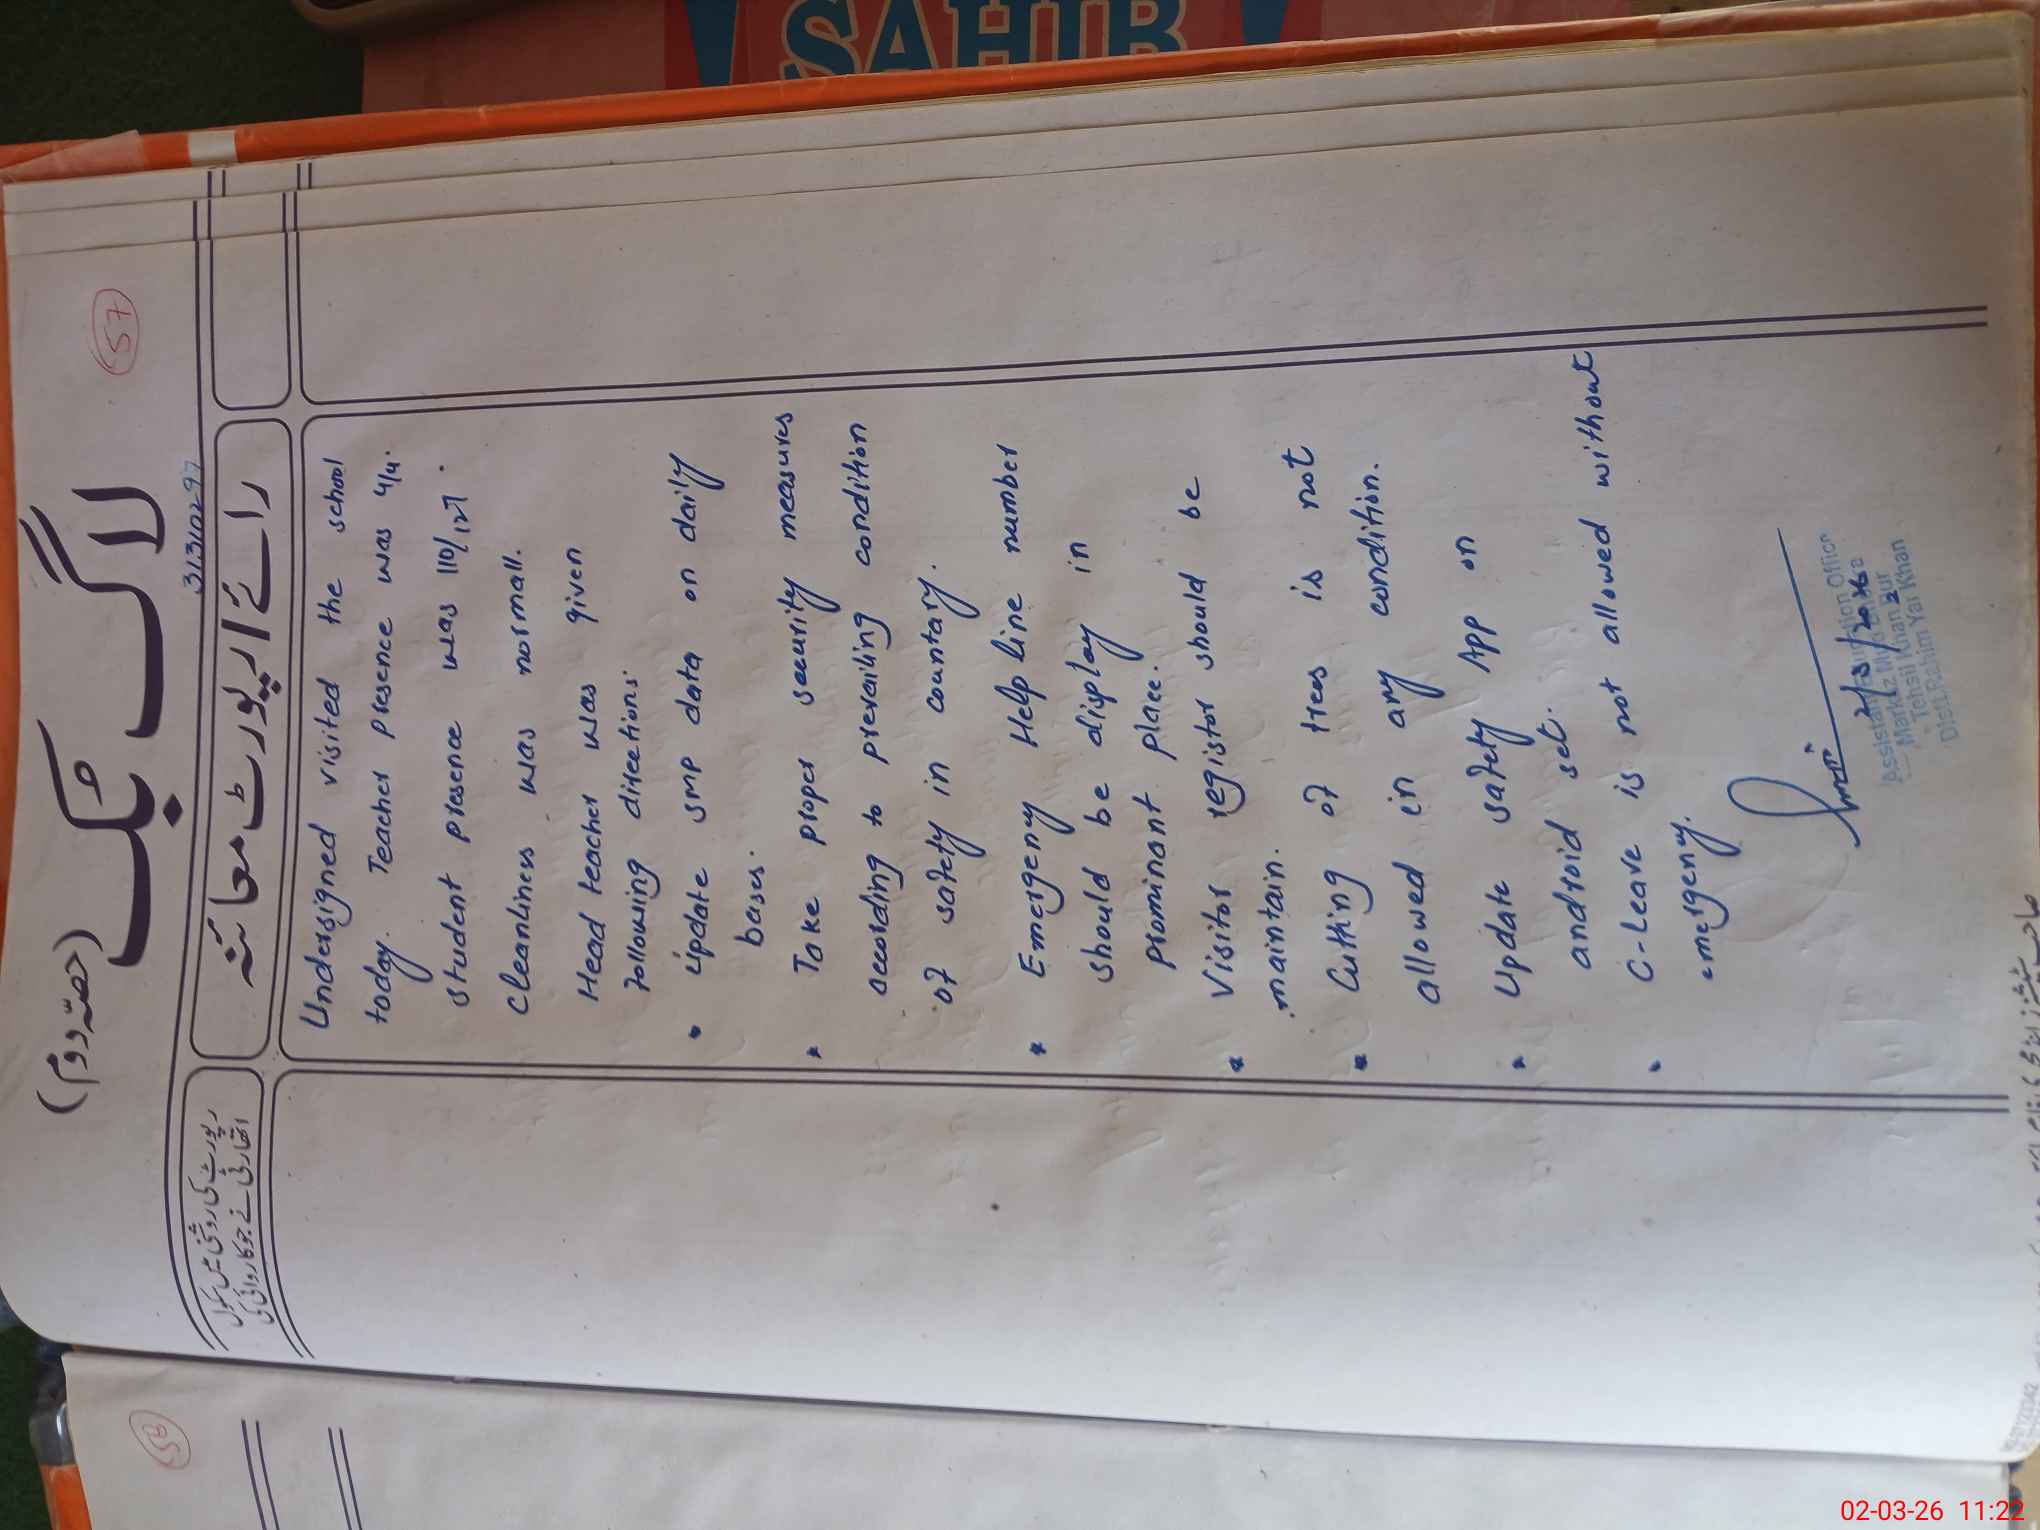 SAHIB
57
لاگ بک
(حصّہ دوم)
31310297
رائے / رپورٹ معائنہ
رپورٹ کی روشنی میں سکول
اتھارٹی نے جو کاروائی کی
Undersigned visited the school
today. Teacher presence was 4/4.
student presence was 110/127.
Cleanliness was normall.
Head teacher was given
following directions.
update smp data on daily
bases.
Take proper security measures
according to prevailing condition
of safety in countary.
Emergency Help line number
should be display in
prominant place.
Visitor registor should be
maintain.
Cutting of trees is not
allowed in any condition.
Update safety App on
android set.
C-Leave is not allowed without
emergency.
2/3/2026
Assistant Education Officer
Markaz
Tehsil Khan Pur
Distt. Rahim Yar Khan
58
02-03-26 11:22